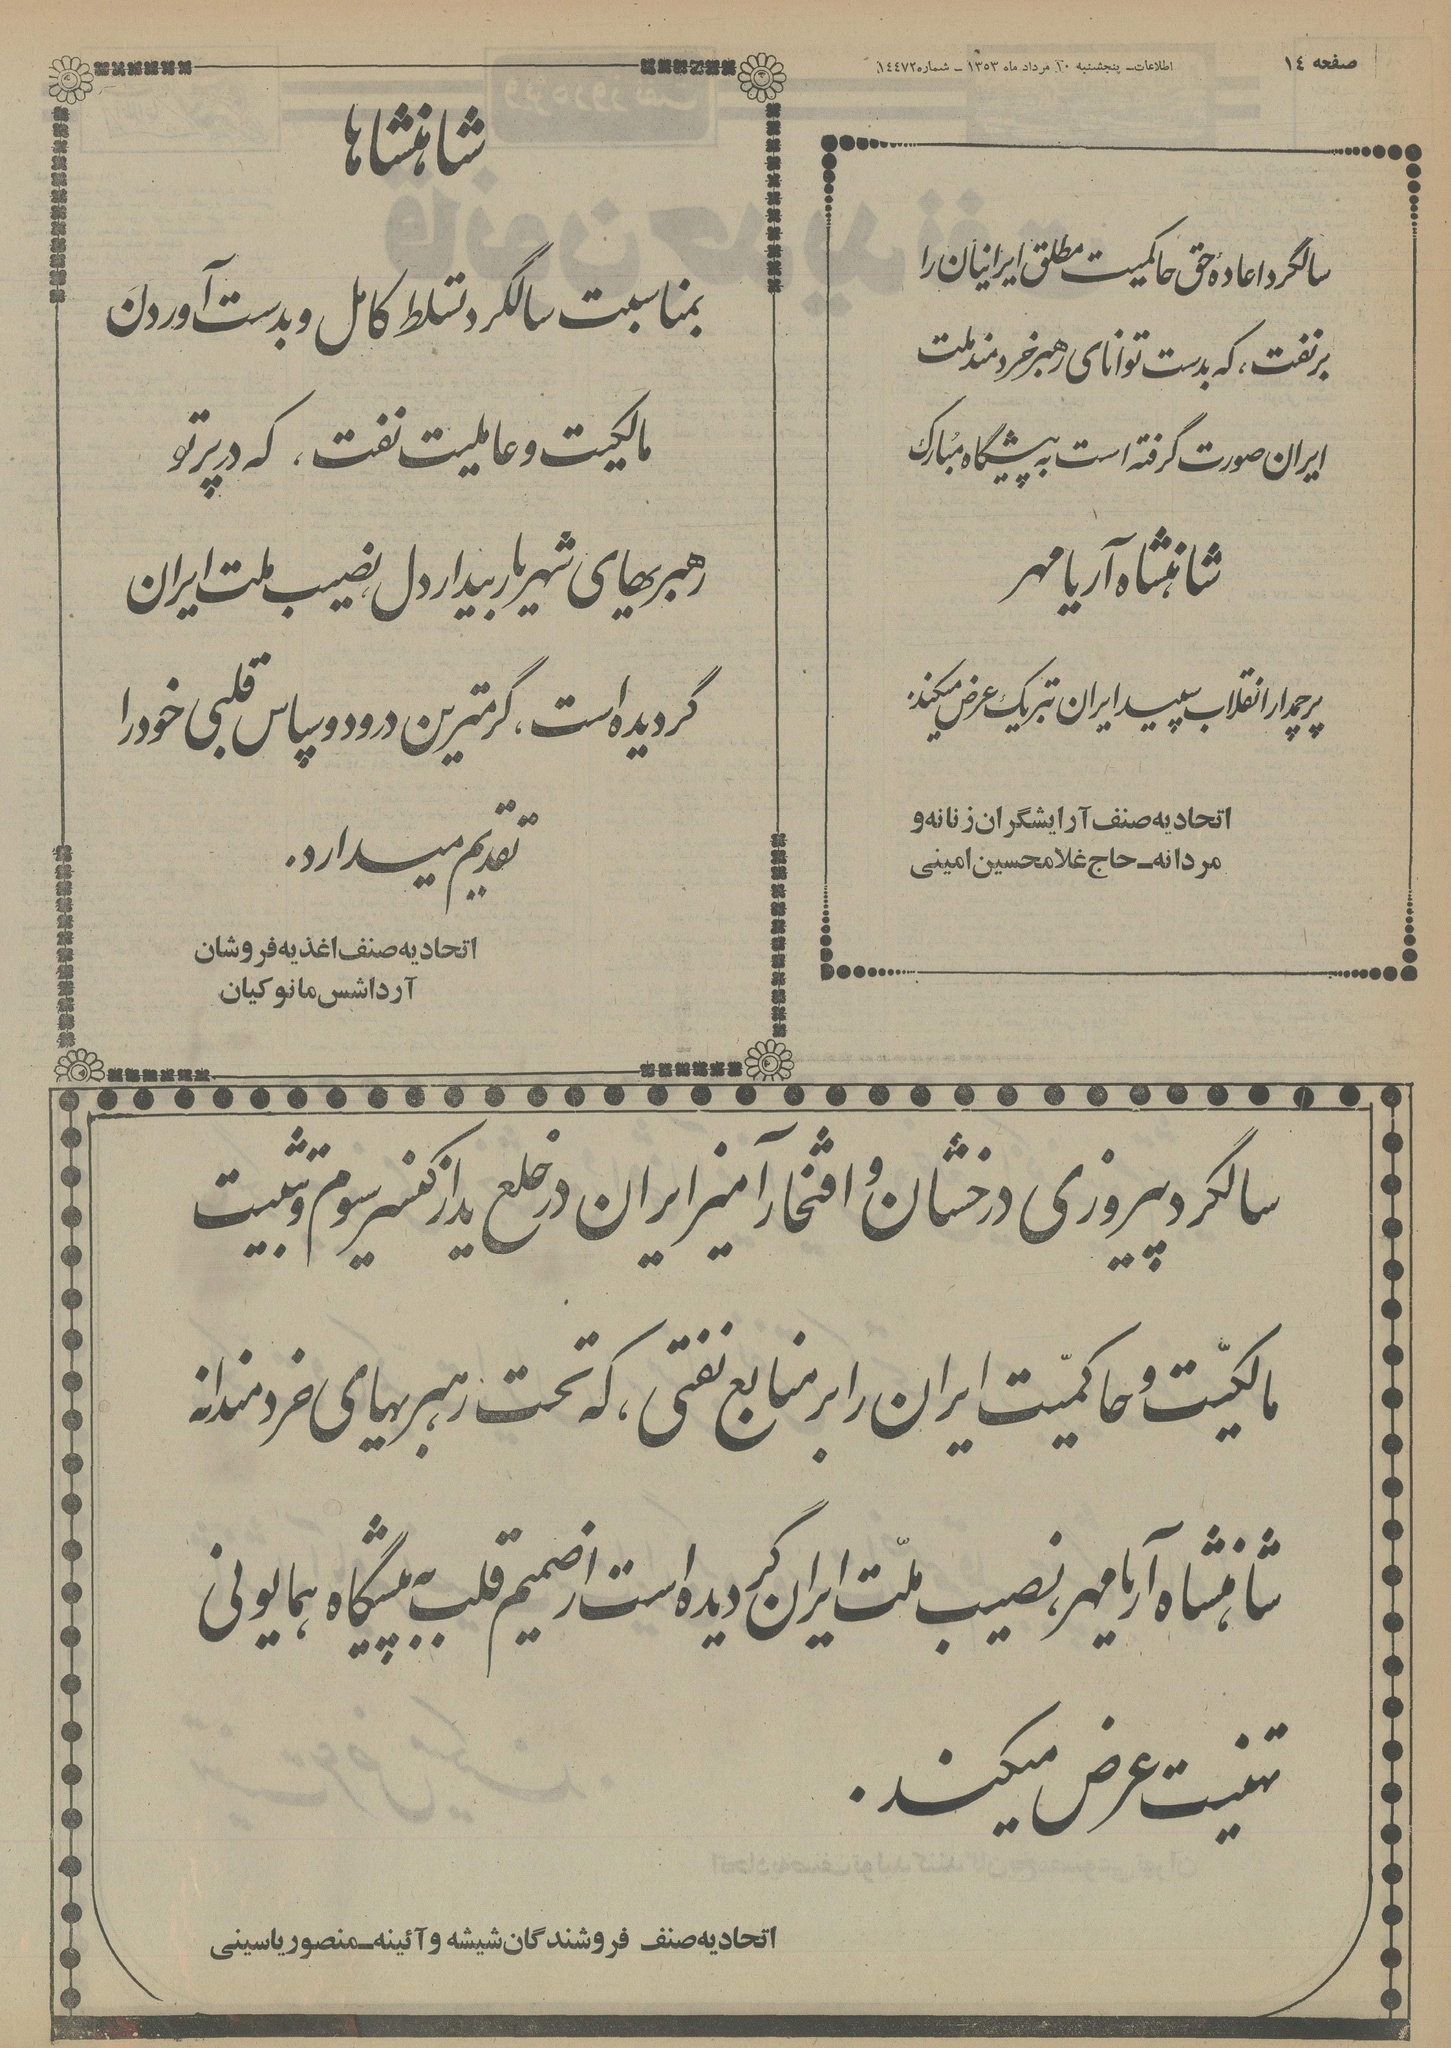 صفحه ۱۴
اطلاعات ـ پنجشنبه ۱۰ مرداد ماه ۱۳۵۳ ـ شماره ۱۴۴۷۲
سالگرد اعادهٔ حق حاکمیت مطلق ایرانیان را
بر نفت، که بدست توانای رهبر خردمند ملت
ایران صورت گرفته است به پیشگاه مبارک
شاهنشاه آریامهر
پرچمدار انقلاب سپید ایران تبریک عرض میکند.
اتحادیه صنف آرایشگران زنانه و
مردانه ـ حاج غلامحسین امینی
شاهنشاها
بمناسبت سالگرد تسلط کامل و بدست آوردن
مالکیت و عاملیت نفت، که در پرتو
رهبریهای شهریار بیدار دل نصیب ملت ایران
گردیده است، گرمترین درود و سپاس قلبی خود را
تقدیم میدارد.
اتحادیه صنف اغذیه فروشان
آرداشس مانوکیان
سالگرد پیروزی درخشان و افتخارآمیز ایران در خلع ید از کنسرسیوم و تثبیت
مالکیّت و حاکمیّت ایران را بر منابع نفتی، که تحت رهبریهای خردمندانه
شاهنشاه آریامهر نصیب ملّت ایران گردیده است از صمیم قلب به پیشگاه همایونی
تهنیت عرض میکند.
اتحادیه صنف فروشندگان شیشه و آئینه ـ منصور یاسینی